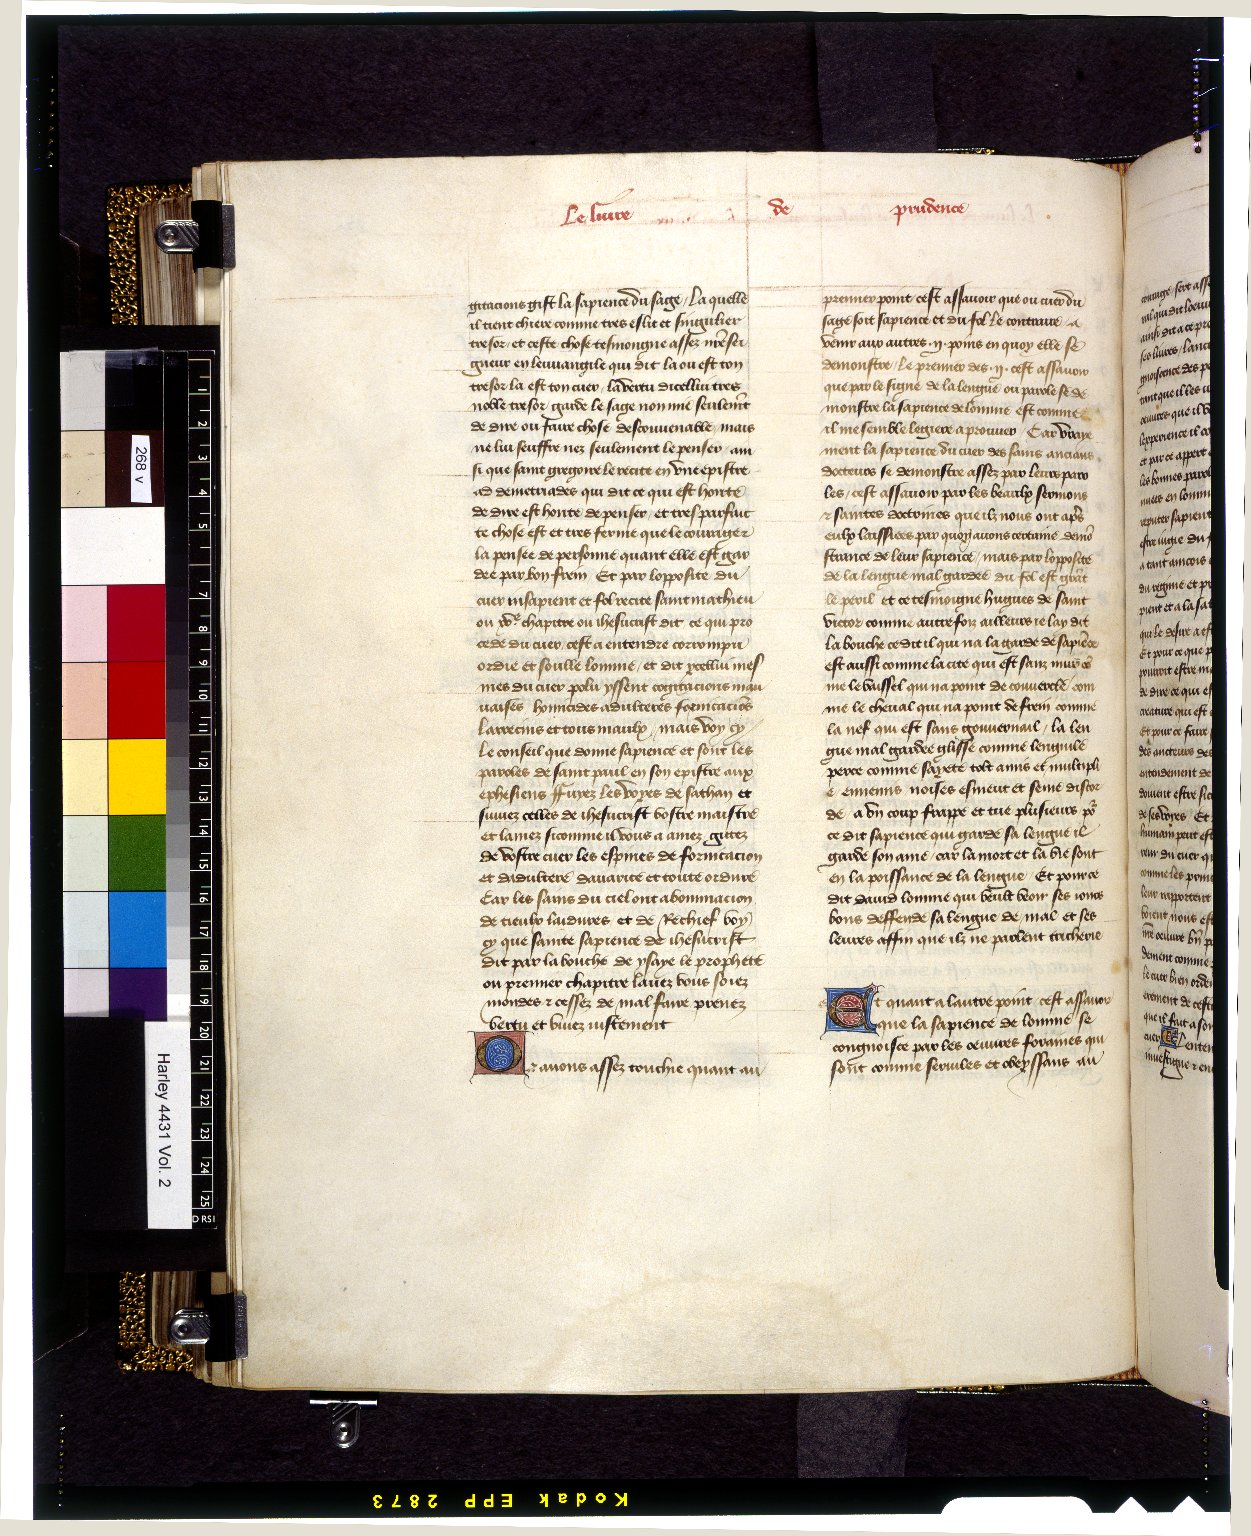 Le liure de prudence
gitacions gist la sapience du sage / La quelle
il tient chiere comme tres eslit et singulier
tresor / et ceste chose tesmongne assez nr̃e sei
gneur en leuuangile qui dit la ou est ton
tresor la est ton cuer / la vertu dicellui tres
noble tresor garde le sage non mie seulem̃t
de dire ou faire chose desconuenable mais
ne lui seuffre nez seulement le penser / ain
si que saint gregoire le recite en vne epistre
ad demetriades qui dit ce qui est honte
de dire est honte de penser / et tres parfait
te chose est et tres ferme que le courrigier
la pensee de personne quant elle est gar
dee par bon frein Et par lopposite du
cuer insapient et fol recite saint mathieu
ou xve chapitre ou ihesucrist dit ce qui pro
cede du cuer cest a entendre corrompu
ordie et soulle lomme / et dit ycellui mes
mes du cuer polu yssent cogitacions mau
uaises homicides adulteres fornicaciõs
Larrecins et tous maulx / mais voy cy
Le conseil que donne sapience et sont les
paroles de saint paul en son epistre aux
ephesiens ffuyez les voyes de sathan et
suiuez celles de ihesucrist vostre maistre
et lamez sicomme il vous a amez gittez
de vostre cuer les espines de fornicacion
et dadultere dauarice et toute ordure
Car les sains du ciel ont abominacion
de tieulx laidures et de Rechief voy
cy que sainte sapience de ihesucrist
dit par la bouche de ysaye le prophete
ou premier chapitre lauez vous soiez
mondes et cessez de mal faire prenez
vertu et viuez iustement
Or auons assez touchie quant au
premier point cest assauoir que ou cuer du
sage soit sapience et du fol le contraire / a
venir aux autres .ij. poins en quoy elle se
demonstre / Le premier des .ij. cest assauoir
que par le signe de la lengue ou parole se de
monstre la sapience de lomme est comme
il me semble legiere a prouuer Car vraye
ment la sapience du cuer des sains ancians
docteurs se demonstre assez par leurs paro
les / cest assauoir par les beaulx sermons
et saintes doctrines que ilz nous ont apr̃s
eulx laissiees par quoy auons certaine demõ
strance de leur sapience / mais par lopposite
de la lengue mal gardee du fol est grãt
le peril et ce tesmoigne hugues de saint
victor comme autrefoiz ailleurs ie lay dit
la bouche ce dit il qui na la garde de sapiẽce
est aussi comme la cite qui est sanz mur cõ
me le vaissel qui na point de couuercle com
me le cheual qui na point de frein comme
la nef qui est sans gouuernail / la len
gue mal gardee glisse comme lenguile
perce comme sayete tolt amis et multipli
e ennemis noises esmeut et seme discor
de a vn coup frappe et tue plusieurs põ
ce dit sapience qui garde sa lengue il
garde son ame / car la mort et la vie sont
en la poissance de la lengue Et pource
dit dauid lomme qui veult veoir ses iours
bons deffende sa lengue de mal et ses
leures affin que ilz ne parlent tricherie
Et quant a lautre point cest assauoir
que la sapience de lomme se
congnoisce par les oeuures foraines qui
sont comme seruiles et obeyssans au
268 v
Harley 4431 Vol. 2
1
2
3
4
5
6
7
8
9
10
11
12
13
14
15
16
17
18
19
20
21
22
23
24
25
Kodak EPP 2873